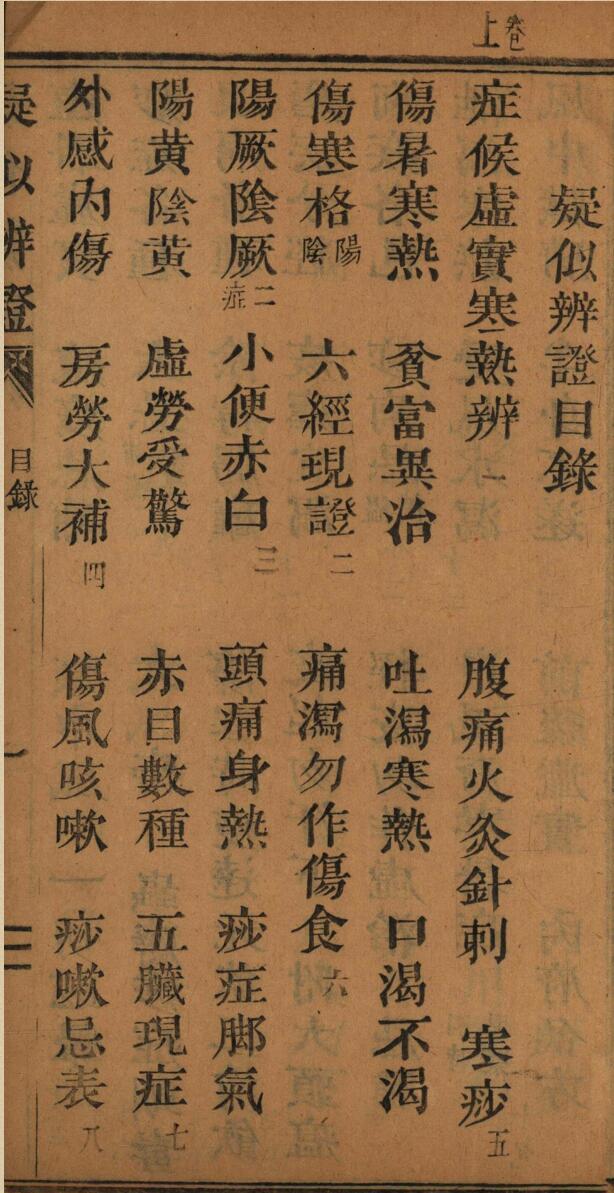 卷上
疑似辨證目錄
症候虛實寒熱辨 一 腹痛火灸針刺 寒痧 五
傷暑寒熱 貧富異治 吐瀉寒熱 口渴不渴
傷寒格陽陰 六經現證 二 痛瀉勿作傷食 六
陽厥陰厥二症 小便赤白 三 頭痛身熱 痧症脚氣
陽黃陰黃 虛勞受驚 赤目數種 五臟現症 七
外感內傷 房勞大補 四 傷風咳嗽一 痧嗽忌表 八
疑似辨證 目錄